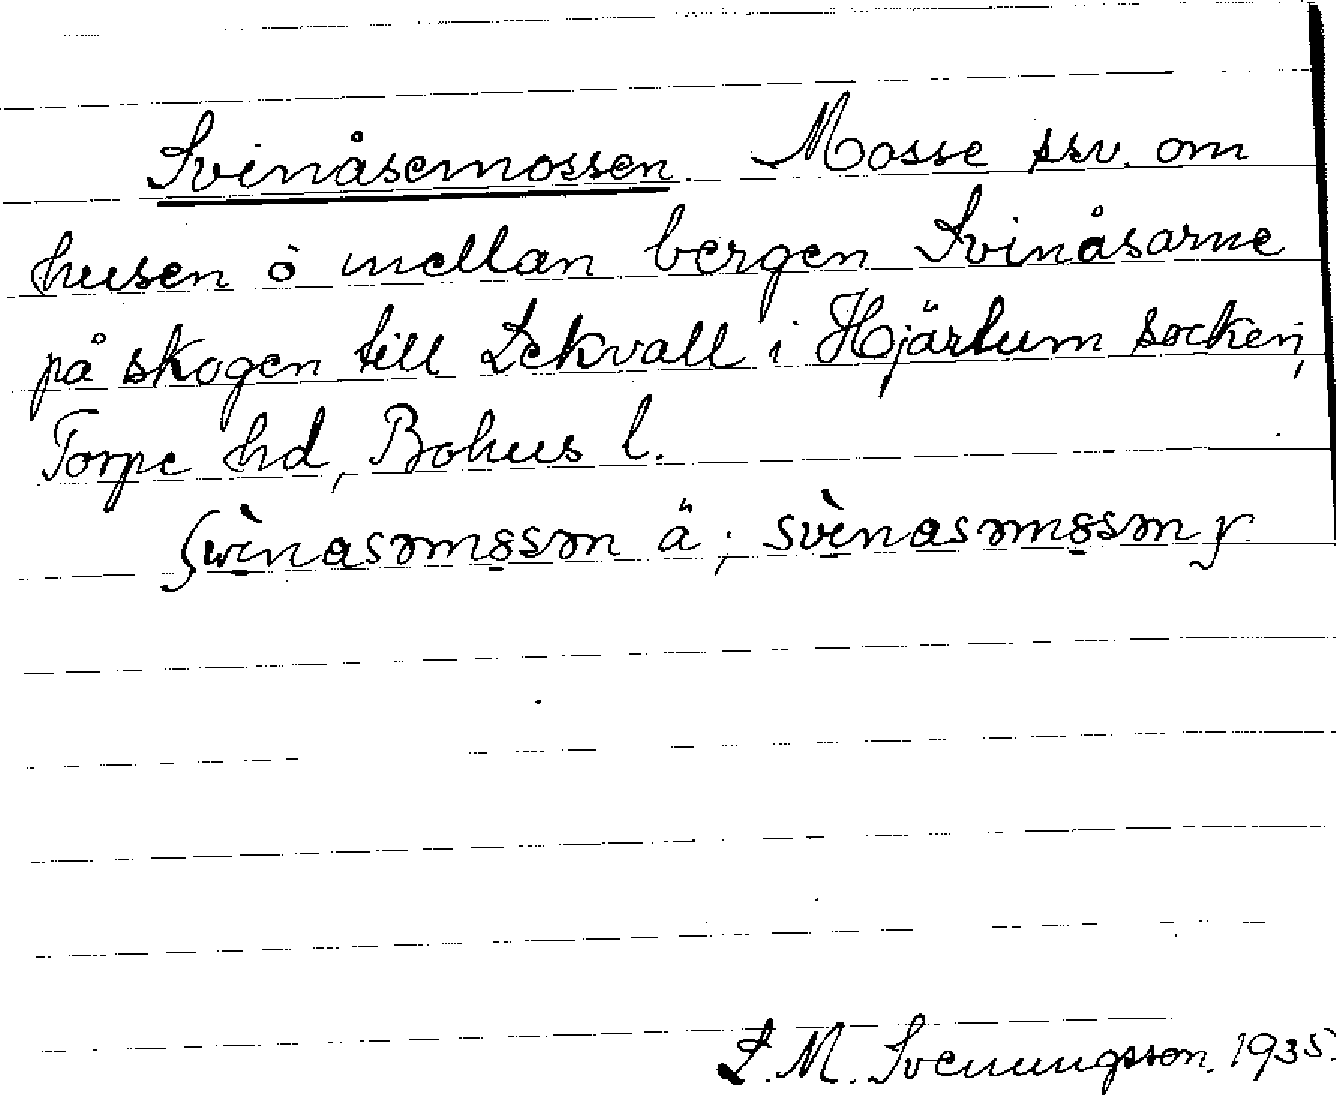 Svinåsemossen. Mosse ssv. om
husen ò mellan bergen Svinåsarne
på skogen till Lekvall i Hjärtum socken,
Torpe hd, Bohus l.
ä; y
L. M. Svenungsson. 1935.